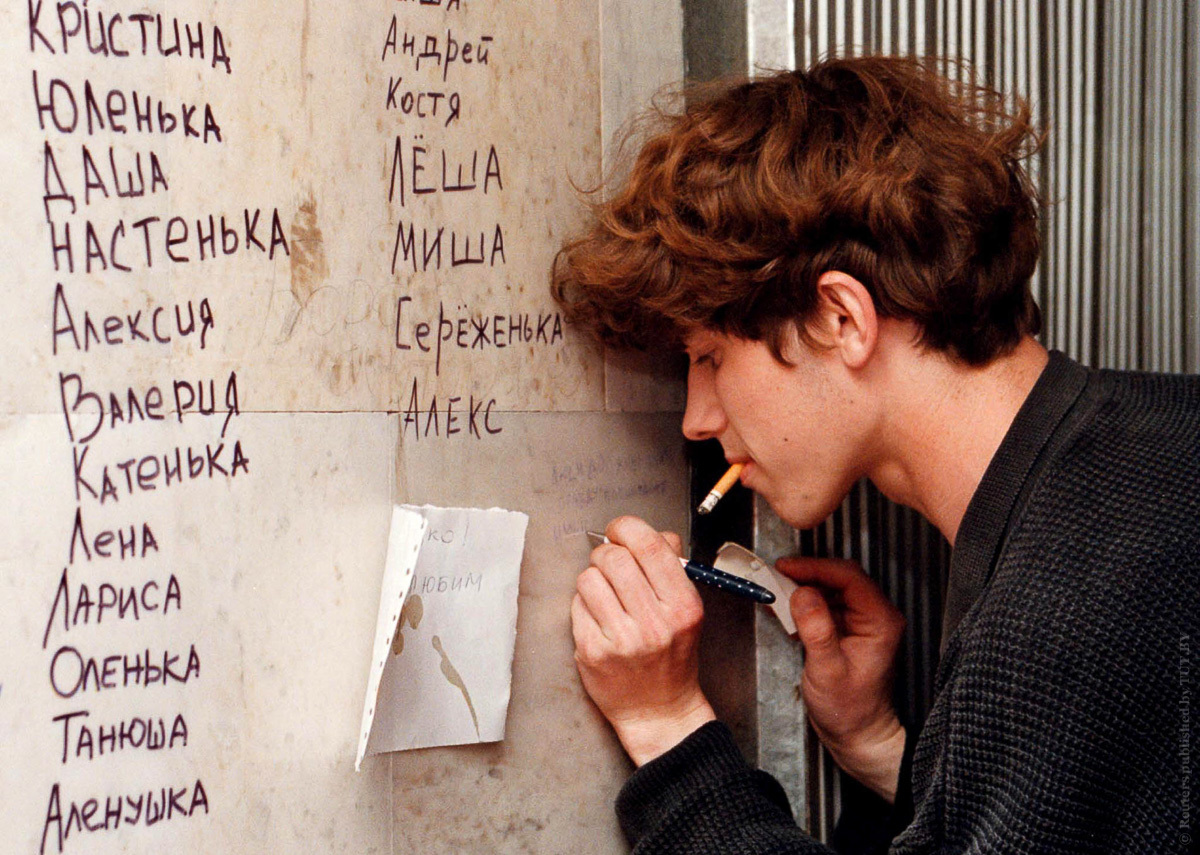 Кристина
Юленька
Даша
Настенька
Алексия
Валерия
Катенька
Лена
Лариса
Оленька
Танюша
Аленушка
Андрей
Костя
Лёша
Миша
Серёженька
Алекс
ко!
любим
© Reuters published by TUT.BY